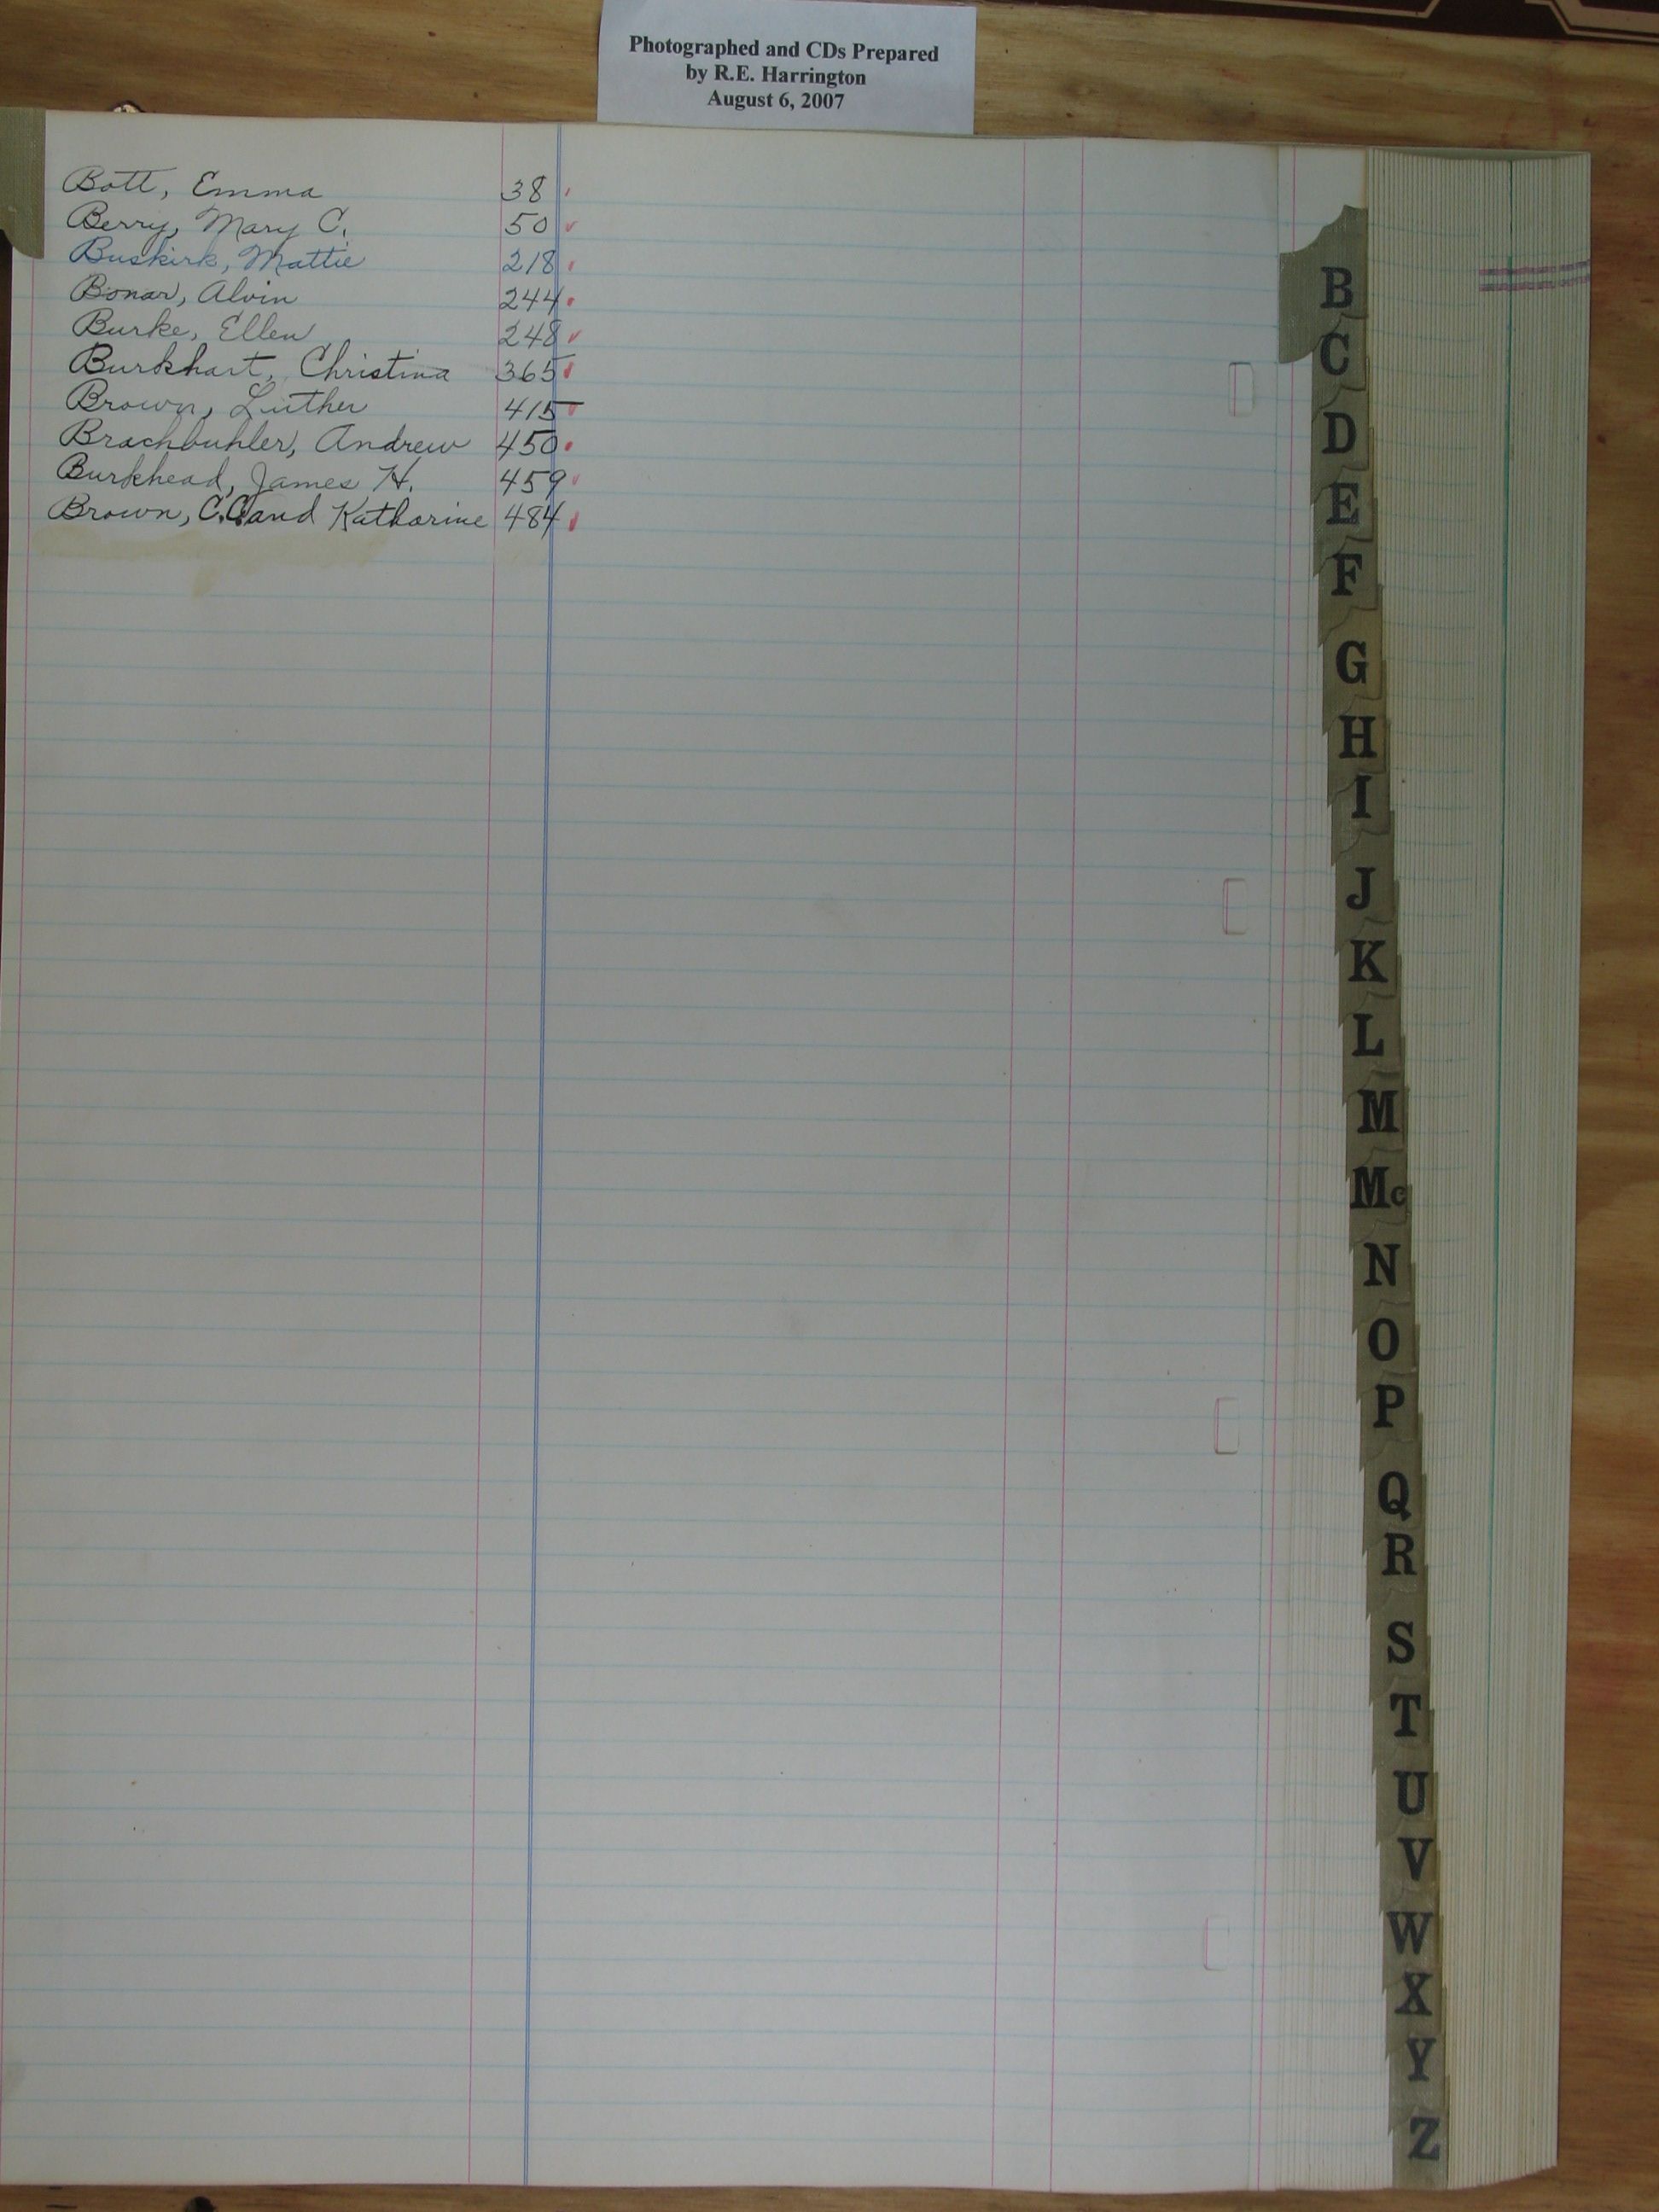 Photographed and CDs Prepared
by R.E. Harrington
August 6, 2007
Bott, Emma 38
Berry, Mary C. 50
Buskirk, Mattie 218
Bonar, Alvin 244
Burke, Ellen 248
Burkhart, Christina 365
Brown, Luther 415
Brachbuhler, Andrew 450
Burkhead, James H. 459
Brown, C.C. and Katharine 484
B
C
D
E
F
G
H
I
J
K
L
M
Mc
N
O
P
Q
R
S
T
U
V
W
X
Y
Z